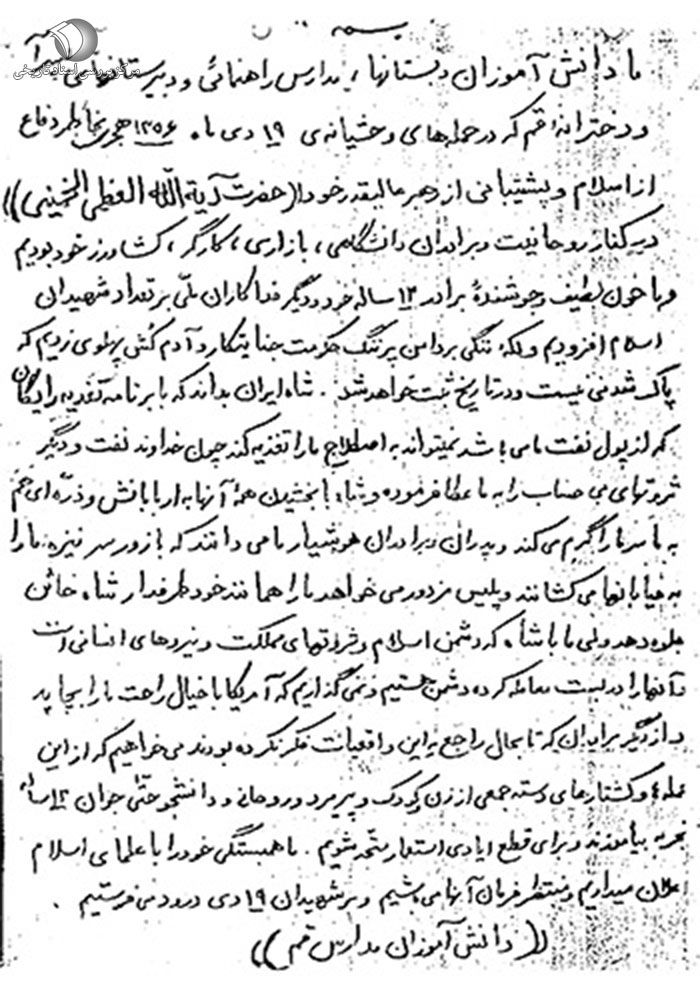 بسمه تعالی
مرکز بررسی اسناد تاریخی
ما دانش آموزان دبستانها، مدارس راهنمائی و دبیرستانهای پسرانه
و دخترانهٔ قم که در حمله‌های وحشیانه‌ی ۱۹ دی ماه ۱۳۵۶ هجری بخاطر دفاع
از اسلام و پشتیبانی از رهبر عالیقدر خود ((حضرت آیة الله العظمی الخمینی))
در کنار روحانیت و برادران دانشگاهی، بازاری، کارگر، کشاورز خود بودیم
و با خون لطیف و جوشندهٔ برادر ۱۳ ساله خود و دیگر فداکاران ملّی بر تعداد شهیدان
اسلام افزودیم و لکهٔ ننگی بر دامن پر ننگ حکومت جنایتکار و آدم کُش پهلوی زدیم که
پاک شدنی نیست و در تاریخ ثبت خواهد شد. شاه ایران بداند که با برنامه تغذیه رایگان
که از پول نفت ما می باشد نمیتواند به اصطلاح ما را تغذیه کند چون خداوند نفت و دیگر
ثروتهای بی حساب را به ما عطا فرموده و شاه با بخشیدن همهٔ آنها به اربابانش و ذرّه ای هم
به ما سر ما را گرم می کند و پدران و برادران هوشیار ما می دانند که با زور سر نیزه ما را
به خیابانها می کشانند و پلیس مزدور می خواهد ما را همانند خود طرفدار شاه خائن
جلوه دهد ولی ما با شاه که دشمن اسلام و ثروتهای مملکت و نیروهای انسانی است
و آنها را دربست معامله کرده دشمن هستیم و نمی گذاریم که آمریکا با خیال راحت ما را بچاپد
و از دیگر برادران که تا بحال راجع به این واقعیات فکر نکرده بودند می خواهیم که از این
عمله و کشتارهای دسته جمعی از زن و کودک و پیرمرد و روحانی و دانشجو حتّی جوان ۱۳ ساله
تجربه بیاموزند و برای قطع ایادی استعمار متحد شویم. ما همبستگی خود را با علمای اسلام
اعلان میداریم و منتظر فرمان آنها می باشیم و بر شهیدان ۱۹ دی درود می فرستیم.
((دانش آموزان مدارس قم))